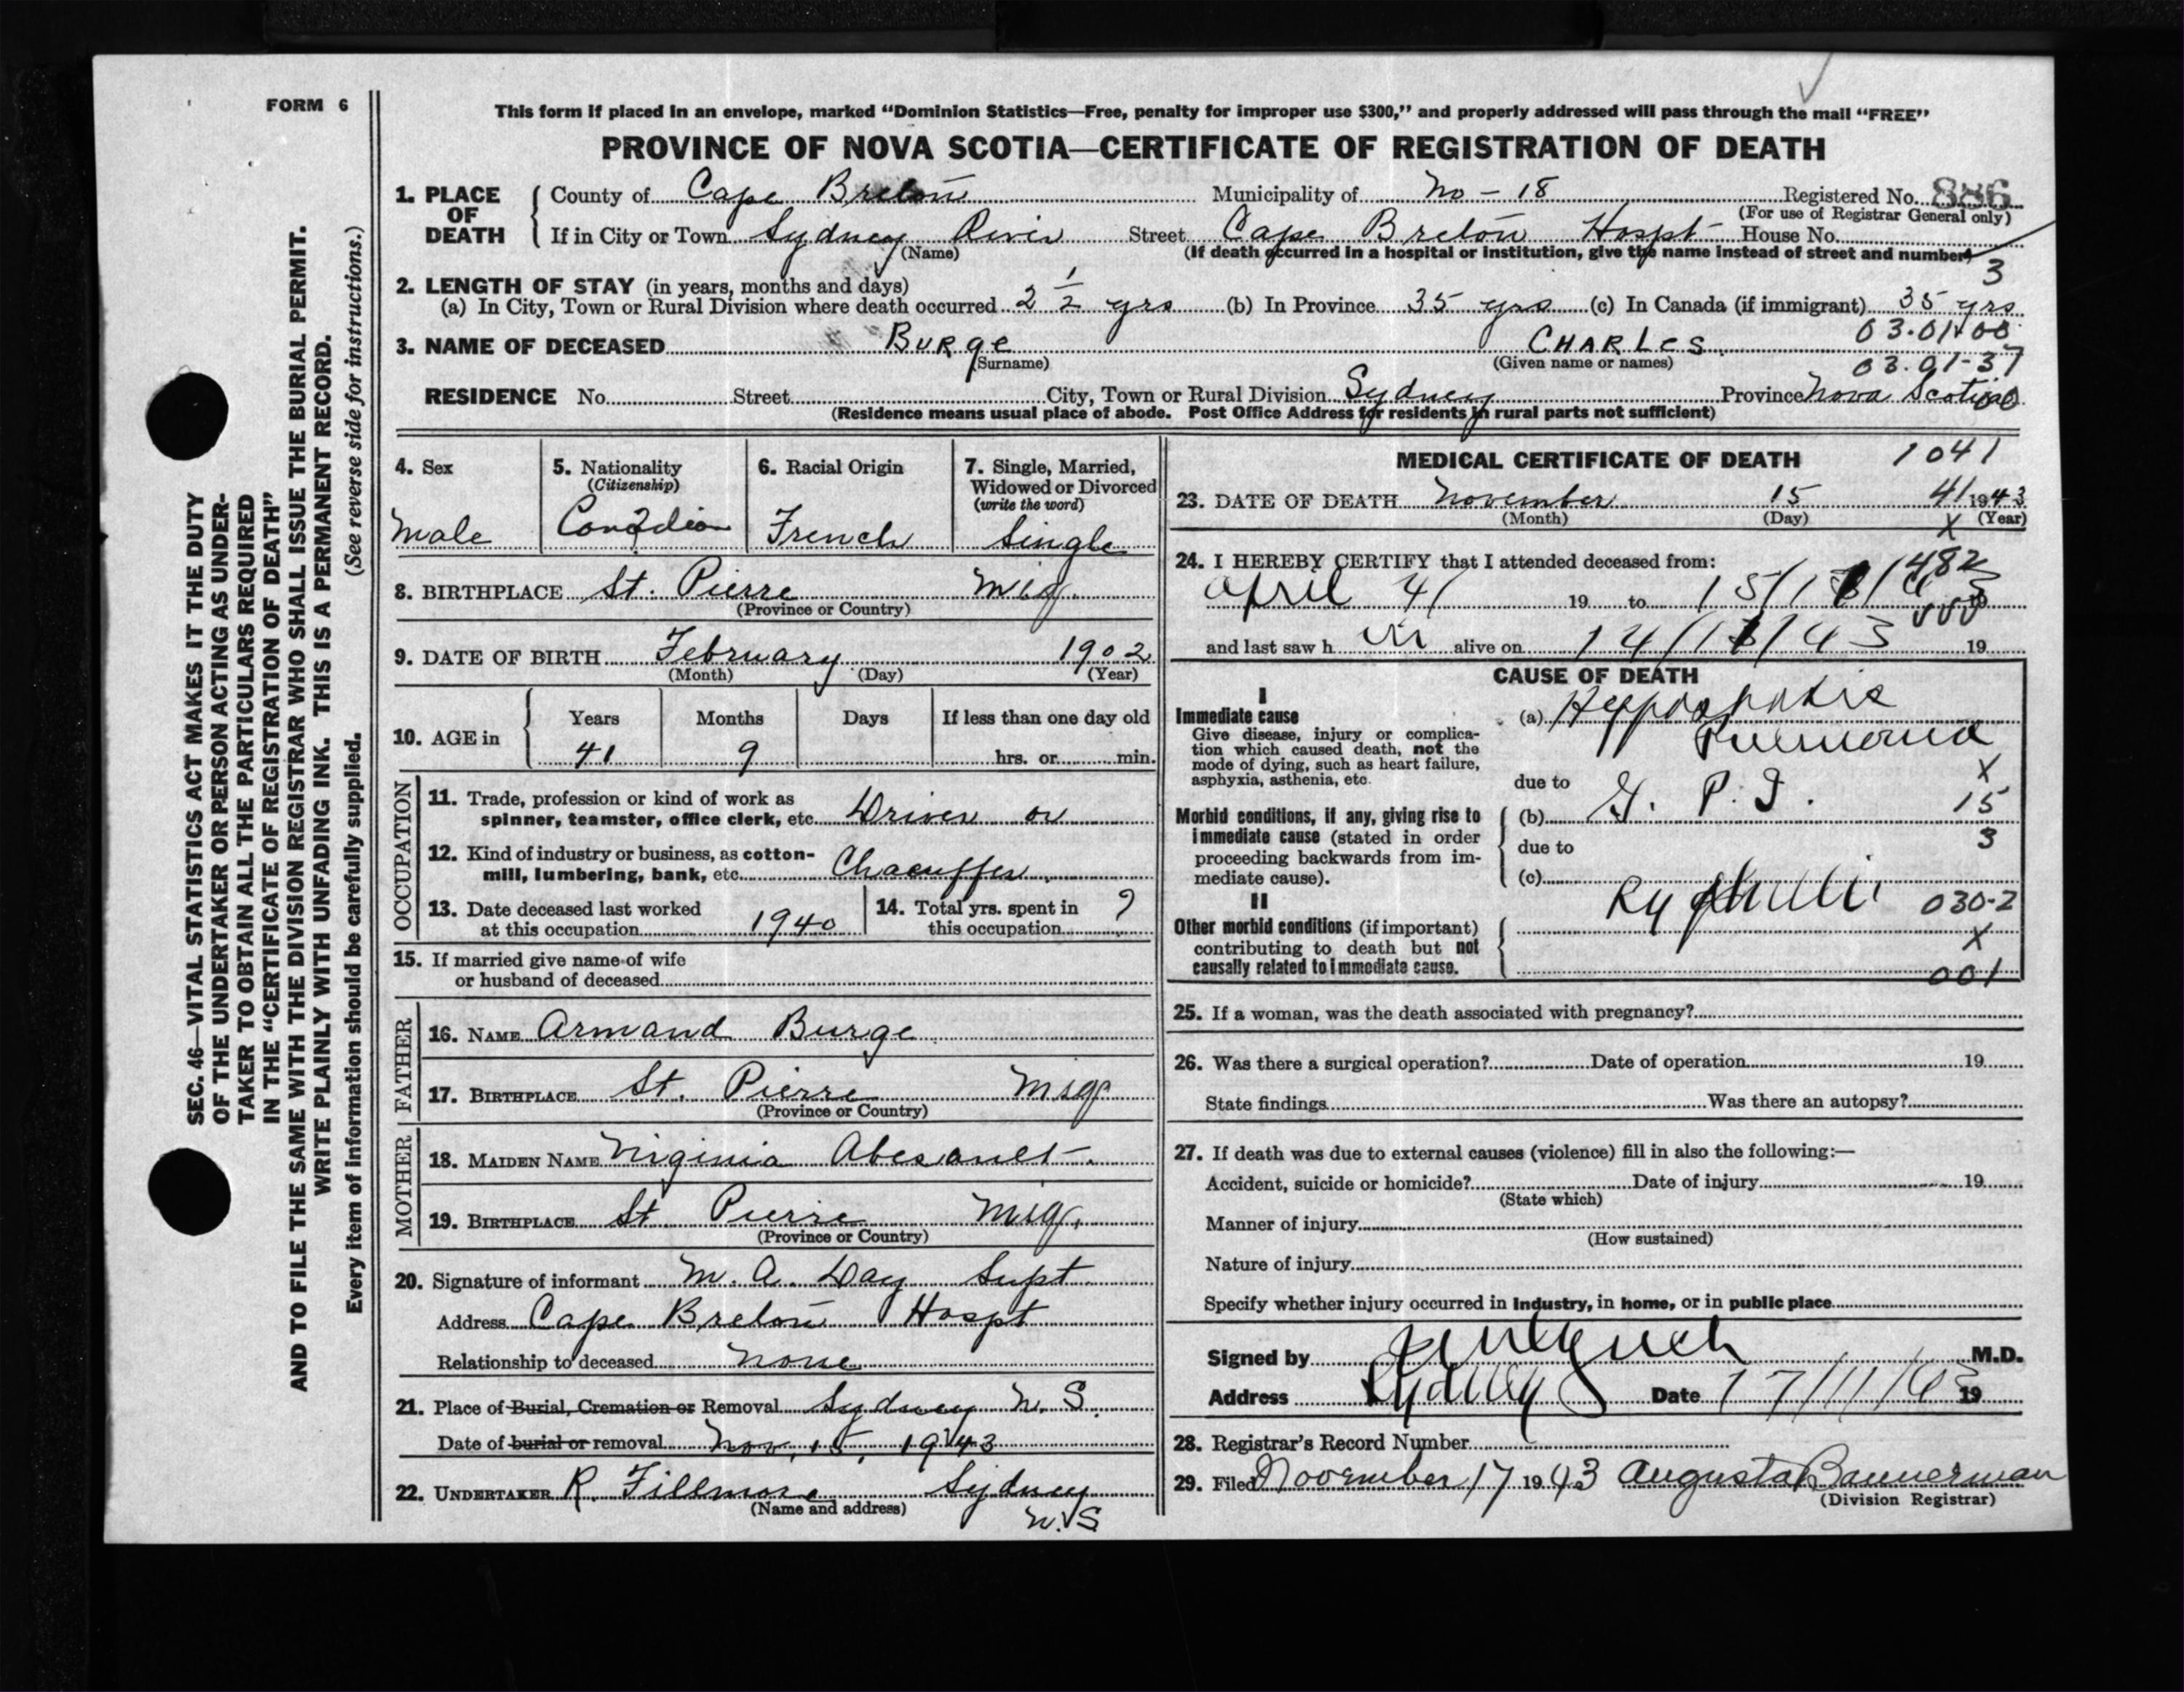 FORM 6
This form if placed in an envelope, marked “Dominion Statistics—Free, penalty for improper use $300,” and properly addressed will pass through the mail “FREE”
PROVINCE OF NOVA SCOTIA—CERTIFICATE OF REGISTRATION OF DEATH
SEC. 46—VITAL STATISTICS ACT MAKES IT THE DUTY
OF THE UNDERTAKER OR PERSON ACTING AS UNDER-
TAKER TO OBTAIN ALL THE PARTICULARS REQUIRED
IN THE “CERTIFICATE OF REGISTRATION OF DEATH”
AND TO FILE THE SAME WITH THE DIVISION REGISTRAR WHO SHALL ISSUE THE BURIAL PERMIT.
WRITE PLAINLY WITH UNFADING INK. THIS IS A PERMANENT RECORD.
Every item of information should be carefully supplied. (See reverse side for instructions.)
1. PLACE OF DEATH
County of Cape Breton Municipality of No - 18 Registered No. 886
(For use of Registrar General only)
If in City or Town Sydney River Street Cape Breton Hospt House No.
(Name) (If death occurred in a hospital or institution, give the name instead of street and number)
3
2. LENGTH OF STAY (in years, months and days)
(a) In City, Town or Rural Division where death occurred 2 1/2 yrs (b) In Province 35 yrs (c) In Canada (if immigrant) 35 yrs
03.01.00
3. NAME OF DECEASED Burge CHARLES
(Surname) (Given name or names)
03.01-37
RESIDENCE No. Street City, Town or Rural Division Sydney Province Nova Scotia
(Residence means usual place of abode. Post Office Address for residents in rural parts not sufficient)
4. Sex
male
5. Nationality
(Citizenship)
Canadian
6. Racial Origin
French
7. Single, Married,
Widowed or Divorced
(write the word)
Single
8. BIRTHPLACE St. Pierre Miq.
(Province or Country)
9. DATE OF BIRTH February 1902
(Month) (Day) (Year)
10. AGE in
Years Months Days If less than one day old
41 9 hrs. or min.
OCCUPATION
11. Trade, profession or kind of work as
spinner, teamster, office clerk, etc. Driver or
12. Kind of industry or business, as cotton-
mill, lumbering, bank, etc. Chaeuffer
13. Date deceased last worked
at this occupation 1940
14. Total yrs. spent in
this occupation ?
15. If married give name of wife
or husband of deceased
FATHER
16. NAME Armand Burge
17. BIRTHPLACE St. Pierre Miq
(Province or Country)
MOTHER
18. MAIDEN NAME Virginia
19. BIRTHPLACE St. Pierre Miq.
(Province or Country)
20. Signature of informant M. A. Day Supt
Address Cape Breton Hospt
Relationship to deceased none
21. Place of Burial, Cremation or Removal Sydney N. S.
Date of burial or removal Nov. 15, 1943
22. UNDERTAKER R. Fillmore Sydney
(Name and address)
N. S
MEDICAL CERTIFICATE OF DEATH 1041
23. DATE OF DEATH November 15 41 1943
(Month) (Day) (Year)
X
24. I HEREBY CERTIFY that I attended deceased from:
482
April 41 19 to 15/11/43 19
and last saw h im alive on 14/11/43 19
CAUSE OF DEATH
I
Immediate cause
Give disease, injury or complica-
tion which caused death, not the
mode of dying, such as heart failure,
asphyxia, asthenia, etc.
(a) Hypostatic
Pneumonia
X
due to
Morbid conditions, if any, giving rise to
immediate cause (stated in order
proceeding backwards from im-
mediate cause).
(b) G. P. I. 15
due to 3
(c)
II
030-2
Other morbid conditions (if important)
contributing to death but not
causally related to immediate cause.
X
001
25. If a woman, was the death associated with pregnancy?
26. Was there a surgical operation? Date of operation 19
State findings Was there an autopsy?
27. If death was due to external causes (violence) fill in also the following:—
Accident, suicide or homicide? Date of injury 19
(State which)
Manner of injury
(How sustained)
Nature of injury
Specify whether injury occurred in industry, in home, or in public place
Signed by M.D.
Address Sydney Date 17/11/43 19
28. Registrar's Record Number
29. Filed November 17 1943 Augusta Bannerman
(Division Registrar)